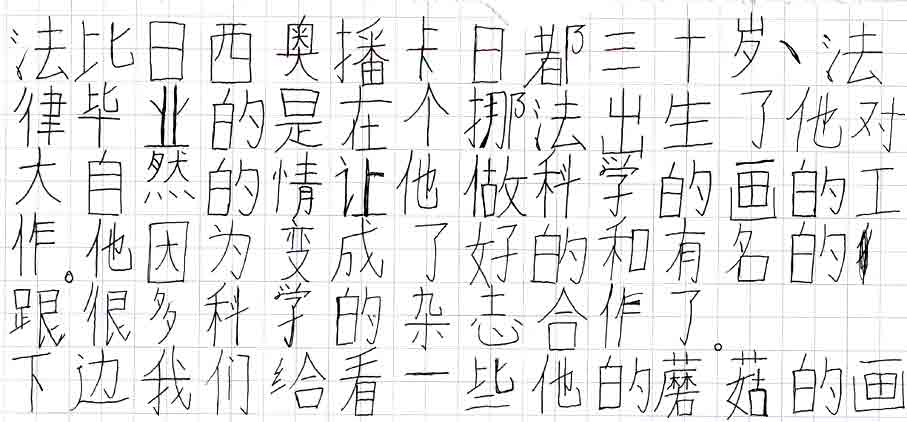 法比日西奥播卡日都三十岁、法
律毕业的是在个挪法出生了他对
大自然的情让他做科学的画的工
作。他因为变成了好的和有名的
跟很多科学的杂志合作了。
下边我们给看一些他的蘑菇的画